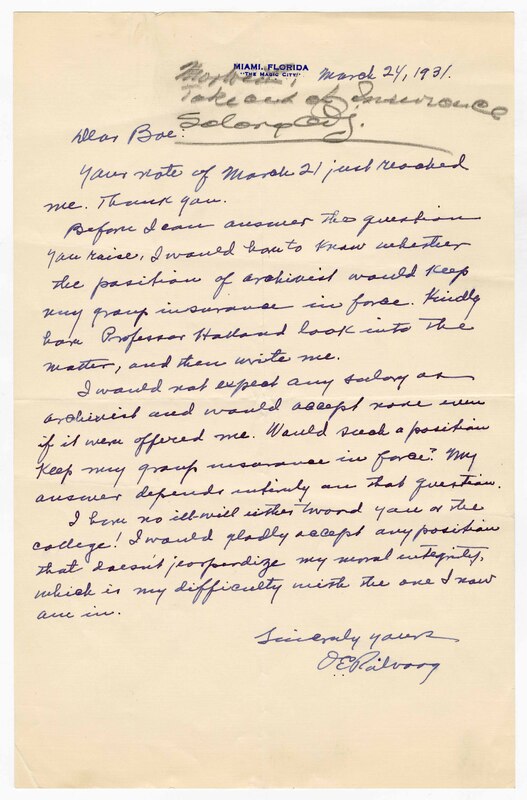 MIAMI, FLORIDA
"THE MAGIC CITY"
March 24, 1931.
Take out of Insurance
Salary
Dear Boe:
Your note of March 21 just reached
me. Thank you.
Before I can answer the question
you raise, I would have to know whether
the position of archivist would keep
my group insurance in force. Kindly
have Professor Holland look into the
matter, and then write me.
I would not expect any salary as
archivist and would accept none even
if it were offered me. Would such a position
keep my group insurance in force? My
answer depends entirely on that question.
I have no ill-will either toward you or the
college! I would gladly accept any position
that doesn't jeopardize my moral integrity,
which is my difficulty with the one I now
am in.
Sincerely yours
O E Rölvaag